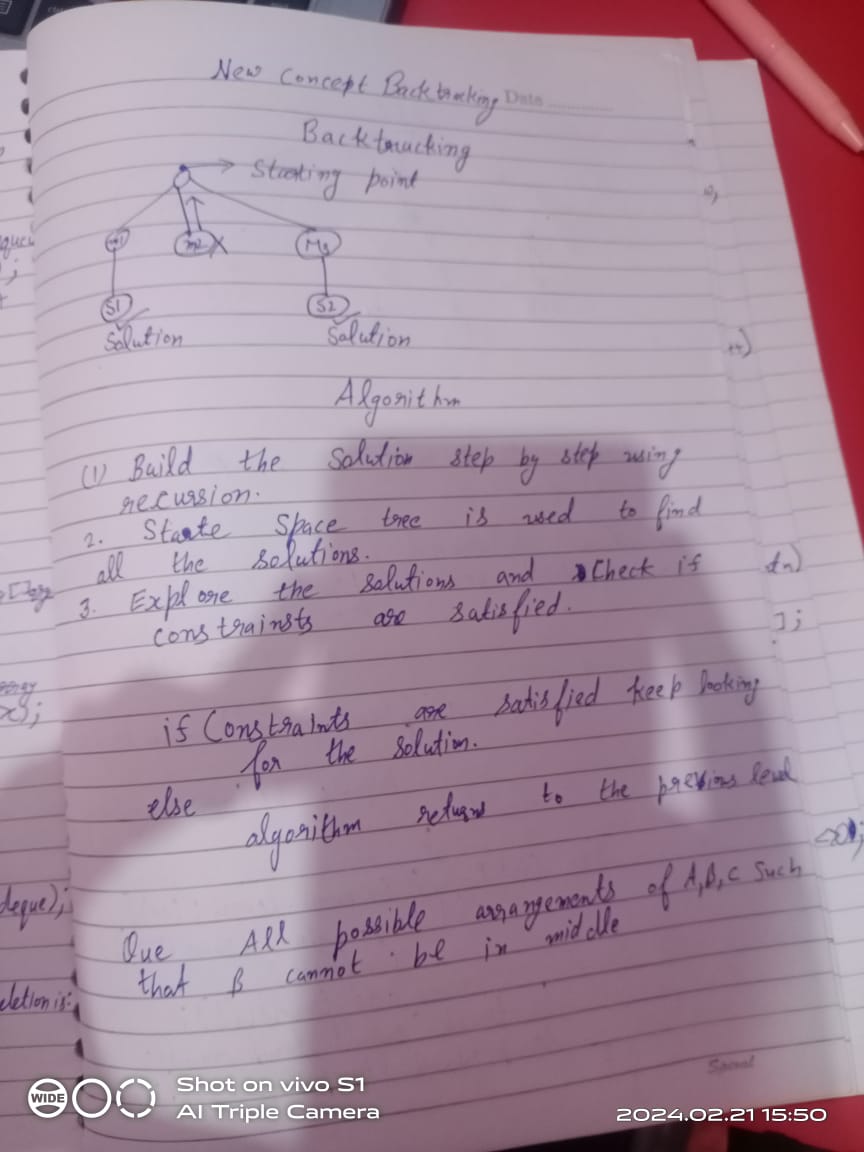 New Concept Backtracking Date
Backtracking
Starting point
m1 m2 X M3
S1 S2
Solution Solution
Algorithm
(1) Build the Solution step by step using
recursion.
2. State Space tree is used to find
all the solutions.
3. Explore the solutions and Check if
constrainsts are satisfied.
if Constraints are satisfied keep looking
for the solution.
else
algorithm returns to the previous level
Que All possible arrangements of A,B,C Such
that B cannot be in middle
deque);
eletion is:
WIDE
Shot on vivo S1
AI Triple Camera
2024.02.21 15:50